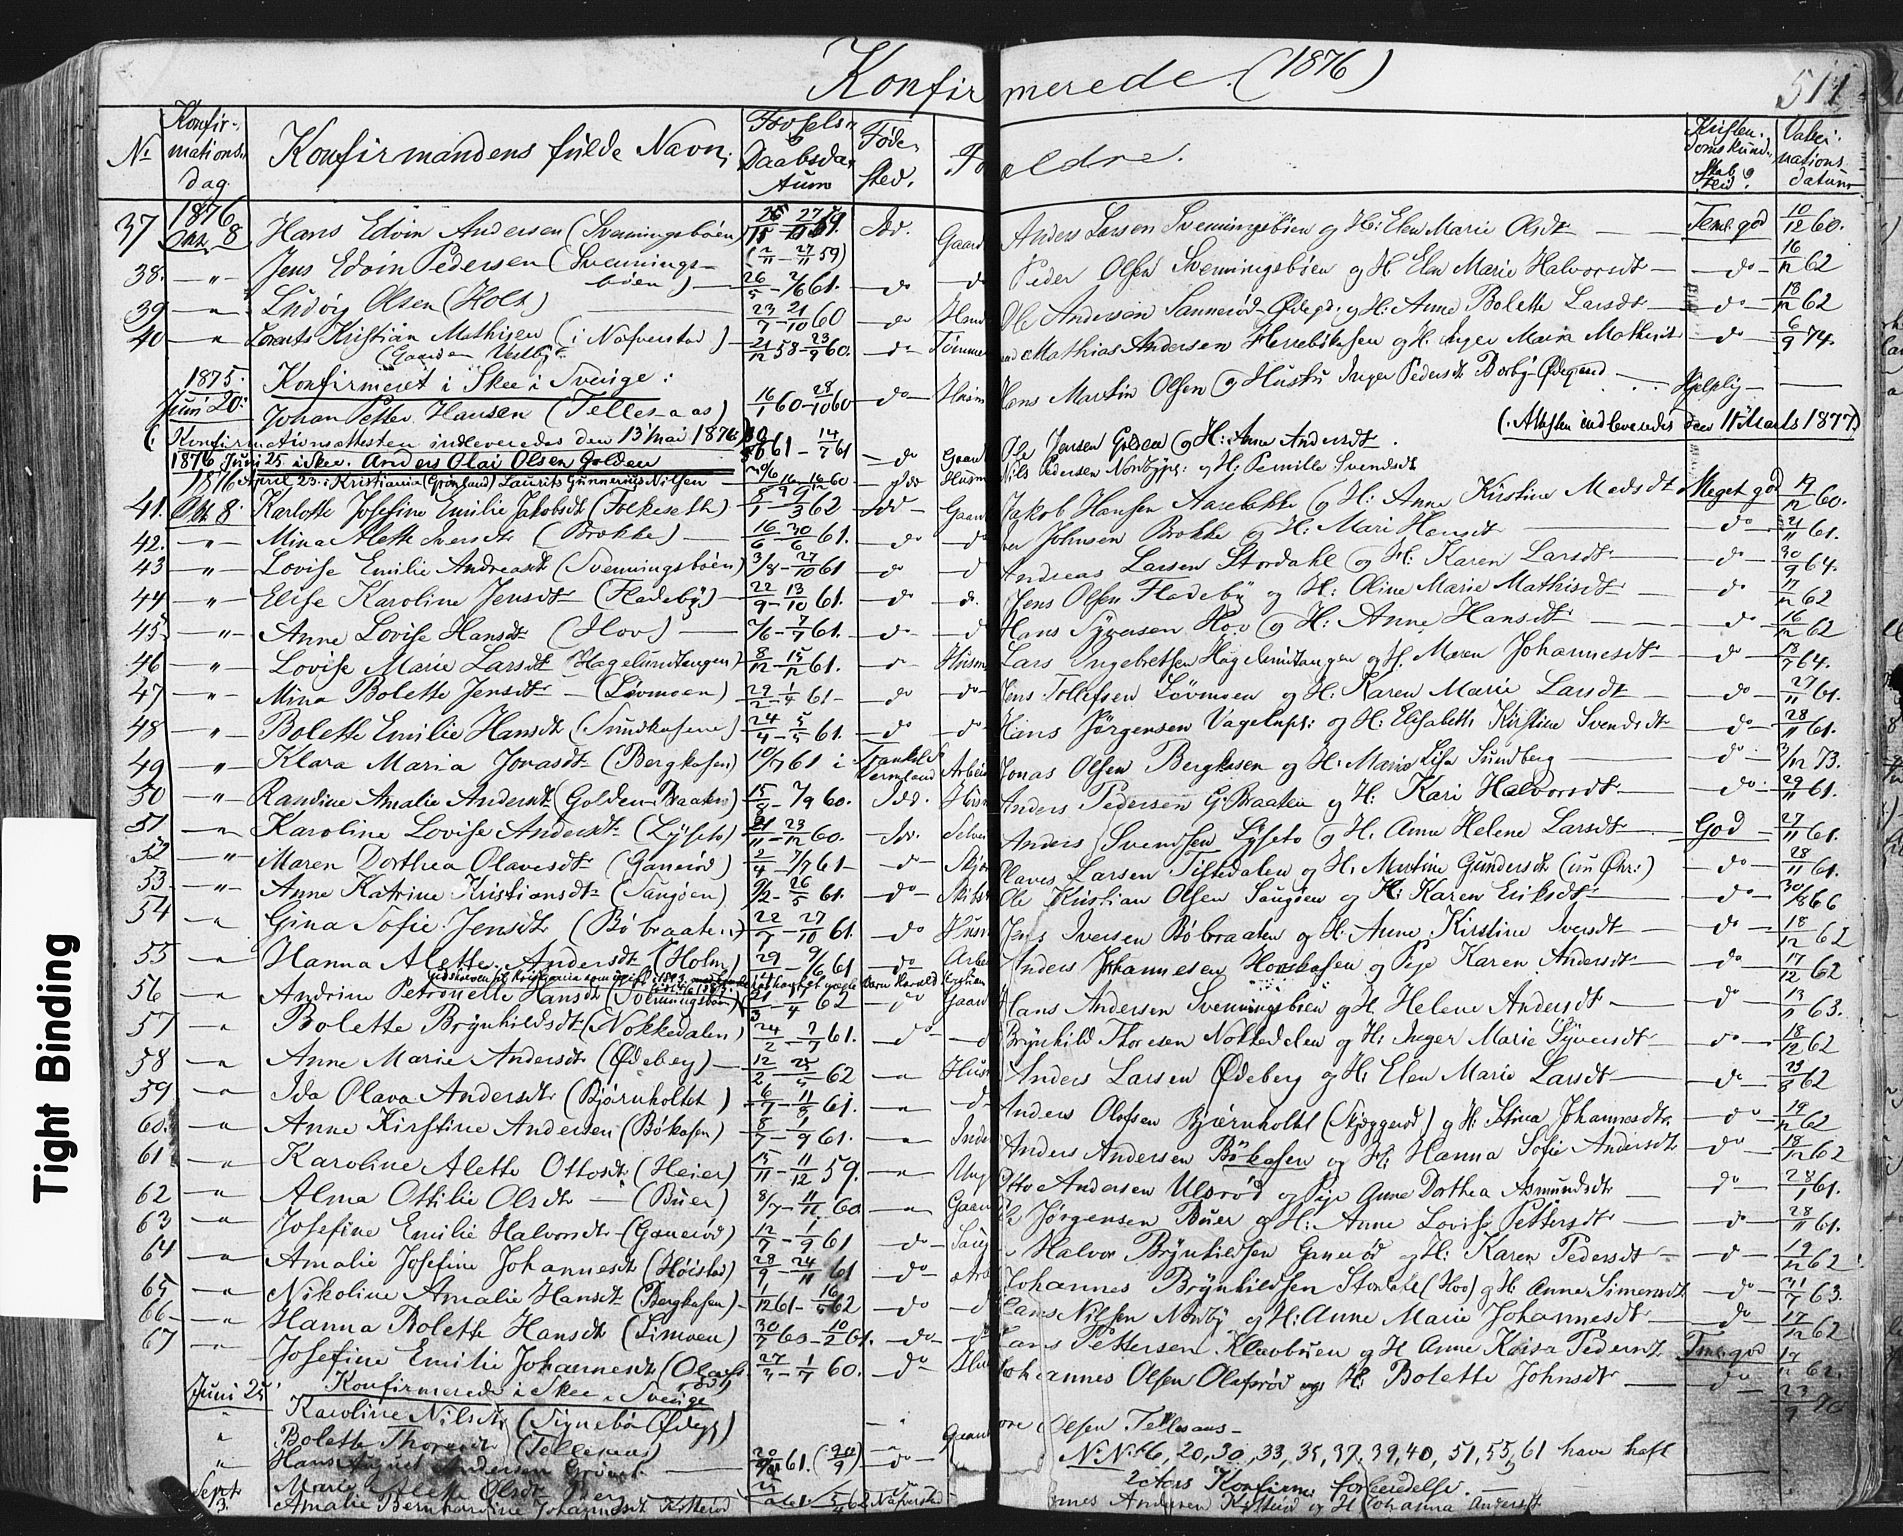 Konfirmerede (1876)
511
No Konfirmations dag Konfirmandens fulde Navn. Fødsels & Daabsdatum Fødested. Forældre. Kristendomskundskab Flid. Vaccinations datum
1876
37 Okt. 8 Hans Edvin Andersen (Svenningsbøen) Idd. Gaard Anders Larsen Svenningsbøen og H: Elen Marie Olsdt Teml. god 10/12 60.
38. " Jens Edvin Pedersen (Svenningsbøen) 26/5 - 2/6 61. do do Peder Olsen Svenningsbøen og H Elen Marie Halvorsdt do 16/12 62
39 " Ludvig Olsen (Holt) 23/7 - 21/10 60 do Ole Andersen Sannerød Ødegd. og H: Anne Bolette Larsdt do 18/12 62
40 " Lorents Kristian Mathisen (i Nafverstad) 21/12 58 - 23/9 60. do Tømmer Mathias Andersen Herrebøkasen og H. Inger Maria Mathisdt do 6/9 74.
1875. Konfirmeret i Skee i Sverige:
Juni 20. Johan Petter Hansen (Tellesaas) 16/1 60 - 28/10 60 do Husm Hans Martin Olsen og Hustru Inger Pedersdt Borby Ødegaard Hjelplig
(Attesten indleveredes den 11 Marts 1877)
(Konfirmationsattesten indleveredes den 13 Mai 1876)
1876 Juni 25 i Skee. Anders Olai Olsen Golden 61 - 14/7 61 do Gaard Ole Jensen Golden og H: Anne Andersdt.
1876 April 23. i Kristiania (Grønland) Laurits Gunnerius Nilsen Husm Nils Pedersen Nordbypl: og H: Pernille Svendsdt
41. Okt 8. Karlotte Josefine Emilie Jakobsdt (Folkeseth) 8/1 - 9/3 62 Idd Gaard Jakob Hansen Aarebakke og H: Anne Kirstine Madsdt Meget god 17/12 60.
42. " Mina Alette Iversdt (Brokke) 16/6 - 30/6 61. do do Iver Johnsen Brokke og H: Mari Hansdt do 21/11 61.
43 " Lovise Emilie Andreasdt (Svenningsbøen) 3/8 - 27/10 61 do d Andreas Larsen Stordahl og H: Karen Larsdt do 30/9 64.
44 " Elise Karoline Jensdt (Fladeby) 22/9 - 13/10 61. do d. Jens Olsen Fladeby og H: Oline Marie Mathisdt do 17/12 62
45 " Anne Lovise Hansdt (Hov) 2/6 - 7/7 61. do d Hans Syversen Hov og H: Anne Hansdt do 16/12 62
46 " Lovise Marie Larsdt (Hagelundtangen) 8/12 - 15/12 61. do Husm Lars Ingebretsen Hagelundtangen og H. Maren Johannesdt do 13/7 64.
47 " Mina Bolette Jensdt (Løvmoen) 22/2 - 1/4 61 do do Jens Tollefsen Løvmoen og H: Karen Marie Larsdt do 27/11 61.
48 " Bolette Emilie Hansdt (Sundkasene) 24/4 - 5/5 61. do do Hans Jørgensen Vagelupl: og H: Elisabeth Kirstine Svendsdt do 28/11 61.
49 " Klara Maria Jonasdt (Bergkasen) 10/7 61 i Vermland Arbei Jonas Olsen Bergkasen og H: Maria Lisa Sundberg do 3/12 73.
50 " Randine Amalie Andersdt (Golden Braaten) 15/7 - 7/9 60. Idd. Husm Anders Pedersen G. Braaten og H: Kari Halvorsdt do 29/11 61.
51 " Karoline Lovise Andersdt (Lyseto) 21/11 - 23/12 60. Idd. Selvei Anders Svendsen Lyseto og H. Anne Helene Larsdt God 27/11 61.
52 " Maren Dorthea Olavesdt (Ganerød) 2/4 - 7/7 61 do Olaves Larsen Tistedalen og H. Martine Gundersdt do 28/11 61.
53 " Anne Katrine Kristiansdt (Saugøen) 9/2 - 26/5 61. do Ole Kristian Olsen Saugøen og H: Karen Eriksdt do 30/8 66
54 " Gina Sofie Jensdt (Bøbraaten) 22/7 - 27/10 61. do Husm Jens Iversen Bøbraaten og H: Anne Kirstine Iversdt do 18/12 62
55 " Hanna Alette Andersdt (Holm) 29 - 9/6 61 do Arbe Anders Johannesen og Pige Karen Andersdt do 17/12 62
56 " Andrine Petronelle Hansdt (Svenningsbøen) 21/3 - 17/4 62 do Gaard Hans Andersen Svenningsbøen og H: Helene Andersdt do 13/1 63.
57 " Bolette Brynhildsdt (Nokkedalen) 24/2 - 2/7 61. do d Brynhild Thoresen Nokkedalen og H: Inger Marie Syversdt do 18/12 62
58 " Anne Marie Andersdt (Ødeberg) 12/2 - 25/5 62 " Husm Anders Larsen Ødeberg og H: Elen Marie Larsdt do 23/8 62
59 " Ida Olava Andersdt (Bjørnholtet) 6/7 - 11/8 61. " d Anders Olafsen Bjørnholtet (Skjeggerød) og H: Stina Johannesdt do 19/12 62
60. " Anne Kirstine Andersen (Bøkasen) 8/7 - 1/9 61. " Inde Anders Andersen Bøkasen og H: Hanna Sofie Andersdt do 18/12 62
61 " Karoline Alette Ottosdt (Heier) 15/11 - 11/12 59. " Ung Otto Andersen Ulsrød og Pige Anne Dorthea Asmundsdt do 28/1 61.
62 " Alma Ottilie Olsdt (Buer) 8/7 - 11/11 60 " Gaard Ole Jørgensen Buer og H: Anne Lovise Pettersdt do 28/11 61.
63 " Josefine Emilie Halvorsdt (Ganerød) 12/7 - 1/9 61 do Saug Halvor Brynhildsen Ganerød og H: Karen Pedersdt do 19/12 62
64 " Amalie Josefine Johannesdt (Høistad) 28/9 - 24/11 61 do Johannes Brynhildsen Stordahl (Hov) og H. Anne Simensdt do 31/7 63.
65 " Nikoline Amalie Hansdt (Bergkasen) 1/12 61 - 16/5 62 do d Hans Nilsen Nordby og H: Anne Marie Johannesdt do 17/12 62
66 " Hanna Bolette Hansdt (Limoen) 30/7 60 - 10/2 61. do do Hans Pettersen Klavbuen og H Anne Kaisa Pedersdt Tml. god 19/12 62.
67 " Josefine Emilie Johannesdt (Olafsrød) 27/3 - 1/7 60. do Hus Johannes Olsen Olafsrød og H: Bolette Johnsdt do 23/9 70
Juni 25 Konfirmerede i Skee i Sverige
" Karoline Nilsdt (Signebøn Ødegd)
" Bolette Thoresdt (Tellesaas) Gaard Tore Olsen Tellesaas
" Hans August Andersen 61. do
No No 6, 20, 30, 33, 35, 37, 39, 40, 51, 55, 61 have haft
2 Aars Konfirm: forberedelse.
Sept 3. Marie Alette Olsdt Buer
Amalie Bernhardine Johannesdt Kjølerød 62 Nafverstad Johannes Andersen og H Johanna Andersdt
Tight Binding